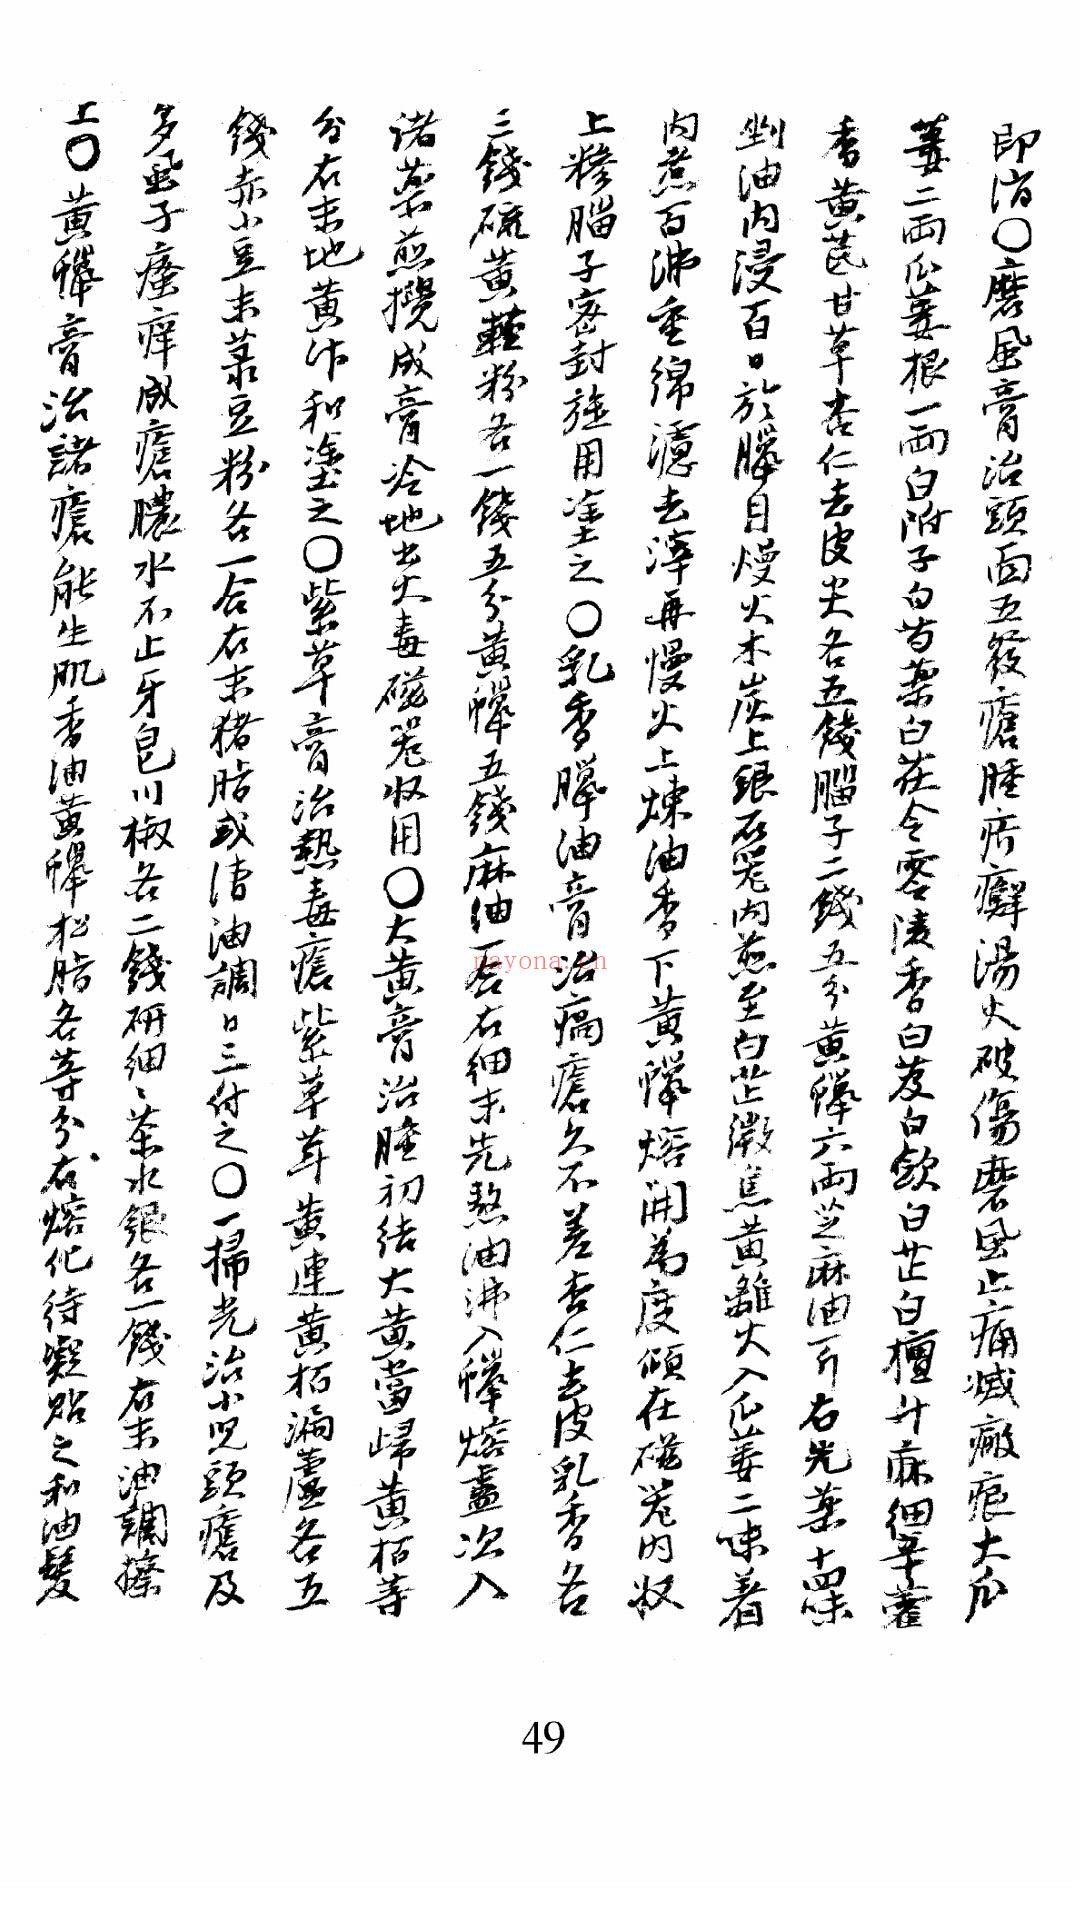 即消〇磨風膏治頭面五發瘡腫疥癬湯火破傷磨風止痛滅瘢痕大瓜
蔞二兩瓜蔞根一兩白附子白芍藥白茯令零陵香白芨白歛白芷白檀升麻細辛藿
香黄芪甘草杏仁去皮尖各五錢腦子二錢五分黄蠟六兩芝麻油一斤右先藥十四味
剉油内浸百日於臘日熳火木炭上銀石器内煎至白芷微焦黄離火入瓜蔞二味着
内煮百沸重綿濾去滓再慢火上煉油香下黄蠟熔開為度傾在磁器内収
上糝腦子密封旋用塗之〇乳香臈油膏治瘑瘡久不差杏仁去皮乳香各
三錢硫黄輕粉各一錢五分黄蠟五錢麻油一合右細末先熬油沸入蠟熔盡次入
諸藥煎攪成膏冷地出火毒磁器収用〇大黄膏治腫初結大黄當歸黄栢等
分右末地黄汁和塗之〇紫草膏治熱毒瘡紫草茸黄連黄栢漏蘆各五
錢赤小豆末菉豆粉各一合右末猪脂或清油調日三付之〇一掃光治小児頭瘡及
多風子瘙痒成瘡膿水不止牙皂川椒各二錢研細々茶水銀各一錢右末油調搽
上〇黄蠟膏治諸瘡能生肌香油黄蠟松脂各等分右熔化待凝貼之和油髮
payona.cn
49